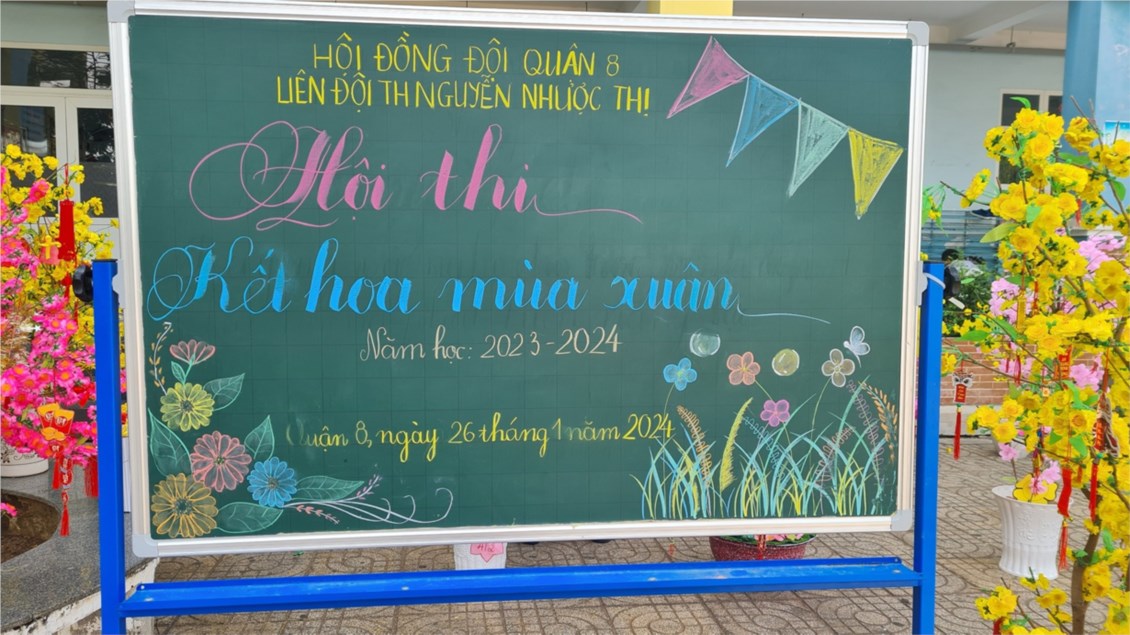 HỘI ĐỒNG ĐỘI QUẬN 8
LIÊN ĐỘI TH NGUYỄN NHƯỢC THỊ
Hội thi
Kết hoa mùa xuân
Năm học: 2023-2024
Quận 8, ngày 26 tháng 1 năm 2024